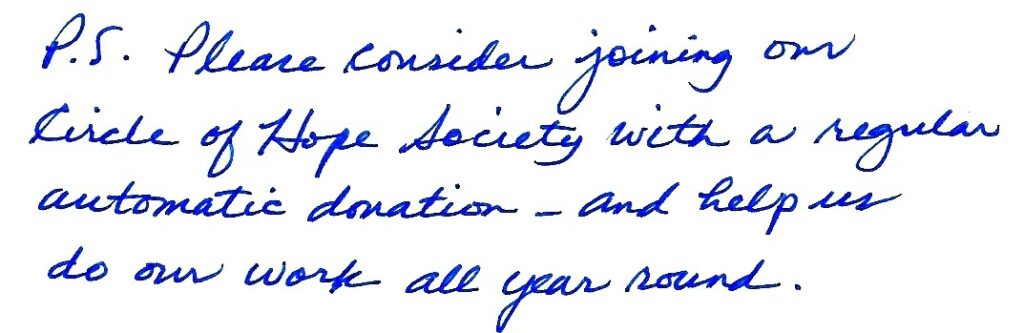 P.S. Please consider joining our
Circle of Hope Society with a regular
automatic donation - and help us
do our work all year round.